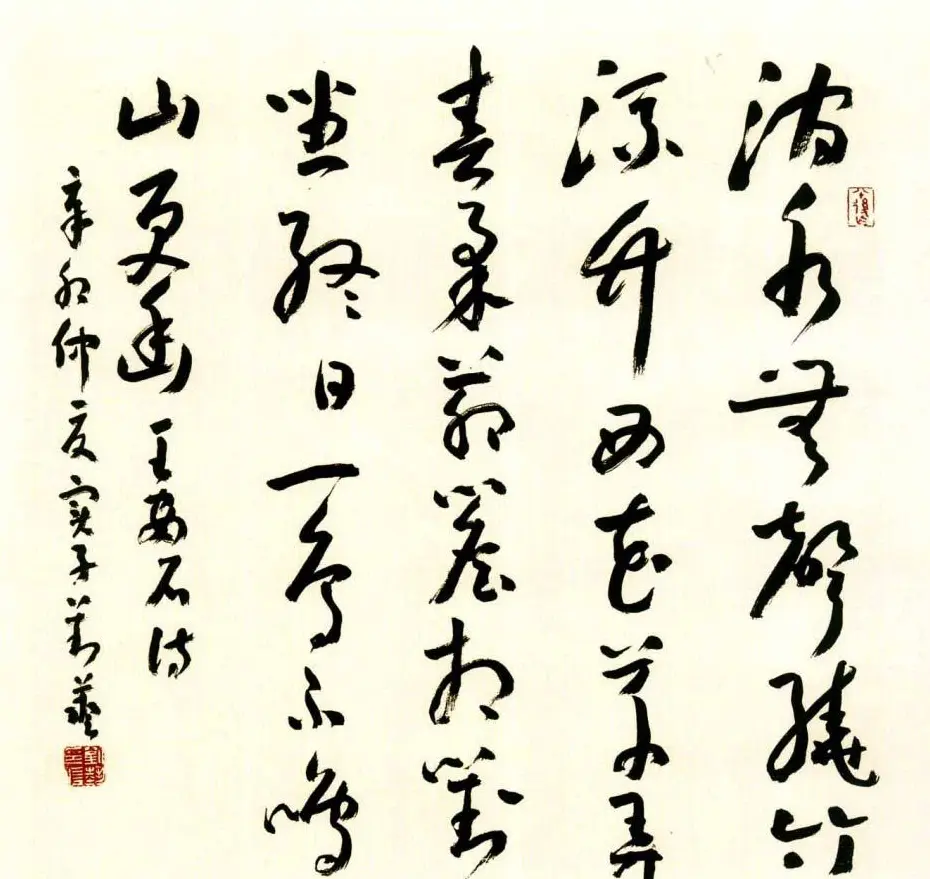 澗水無聲繞竹
流竹西花草弄
春柔茆簷相對
坐終日一鳥不鳴
山更幽 王安石詩
辛卯仲夏